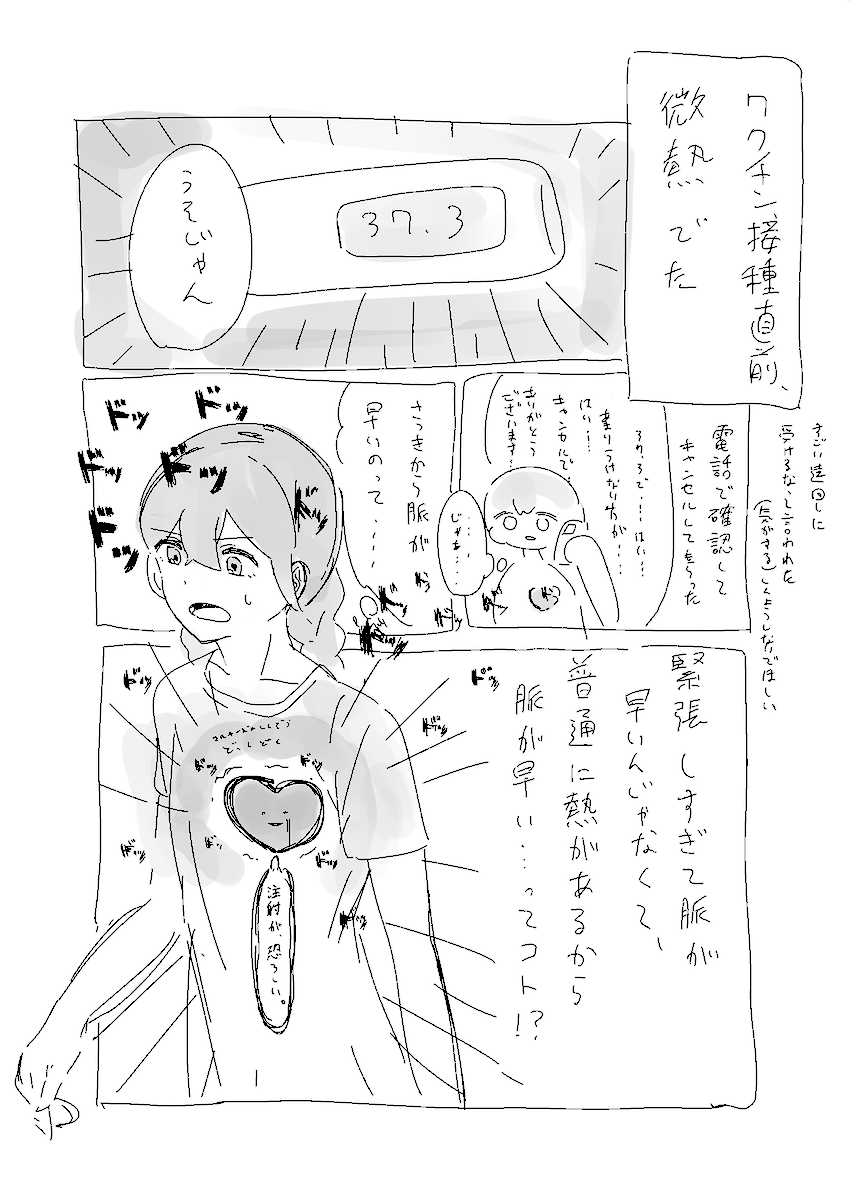 ワクチン接種直前、
微熱でた
37.3
うそじゃん
すごい遠回しに
受けるなって言われた
気がする
しないでほしい
電話で確認して
キャンセルしてもらった
37.3で…はい…
はい…
キャンセルで…
ありがとう
ございます…
…
じゃあ…
さっきから脈が
早いのって…
ドッ
ドッ
ドッ
ドッ
ドッ
ドッ
ドッ
ドッ
ドッ
緊張しすぎて脈が
早いんじゃなくて、
普通に熱があるから
脈が早い…ってコト!?
ドッ
ドッ
ドッ
ドッ
ドッ
ドッ
ドッ
どくどく
注射が、恐ろしい。